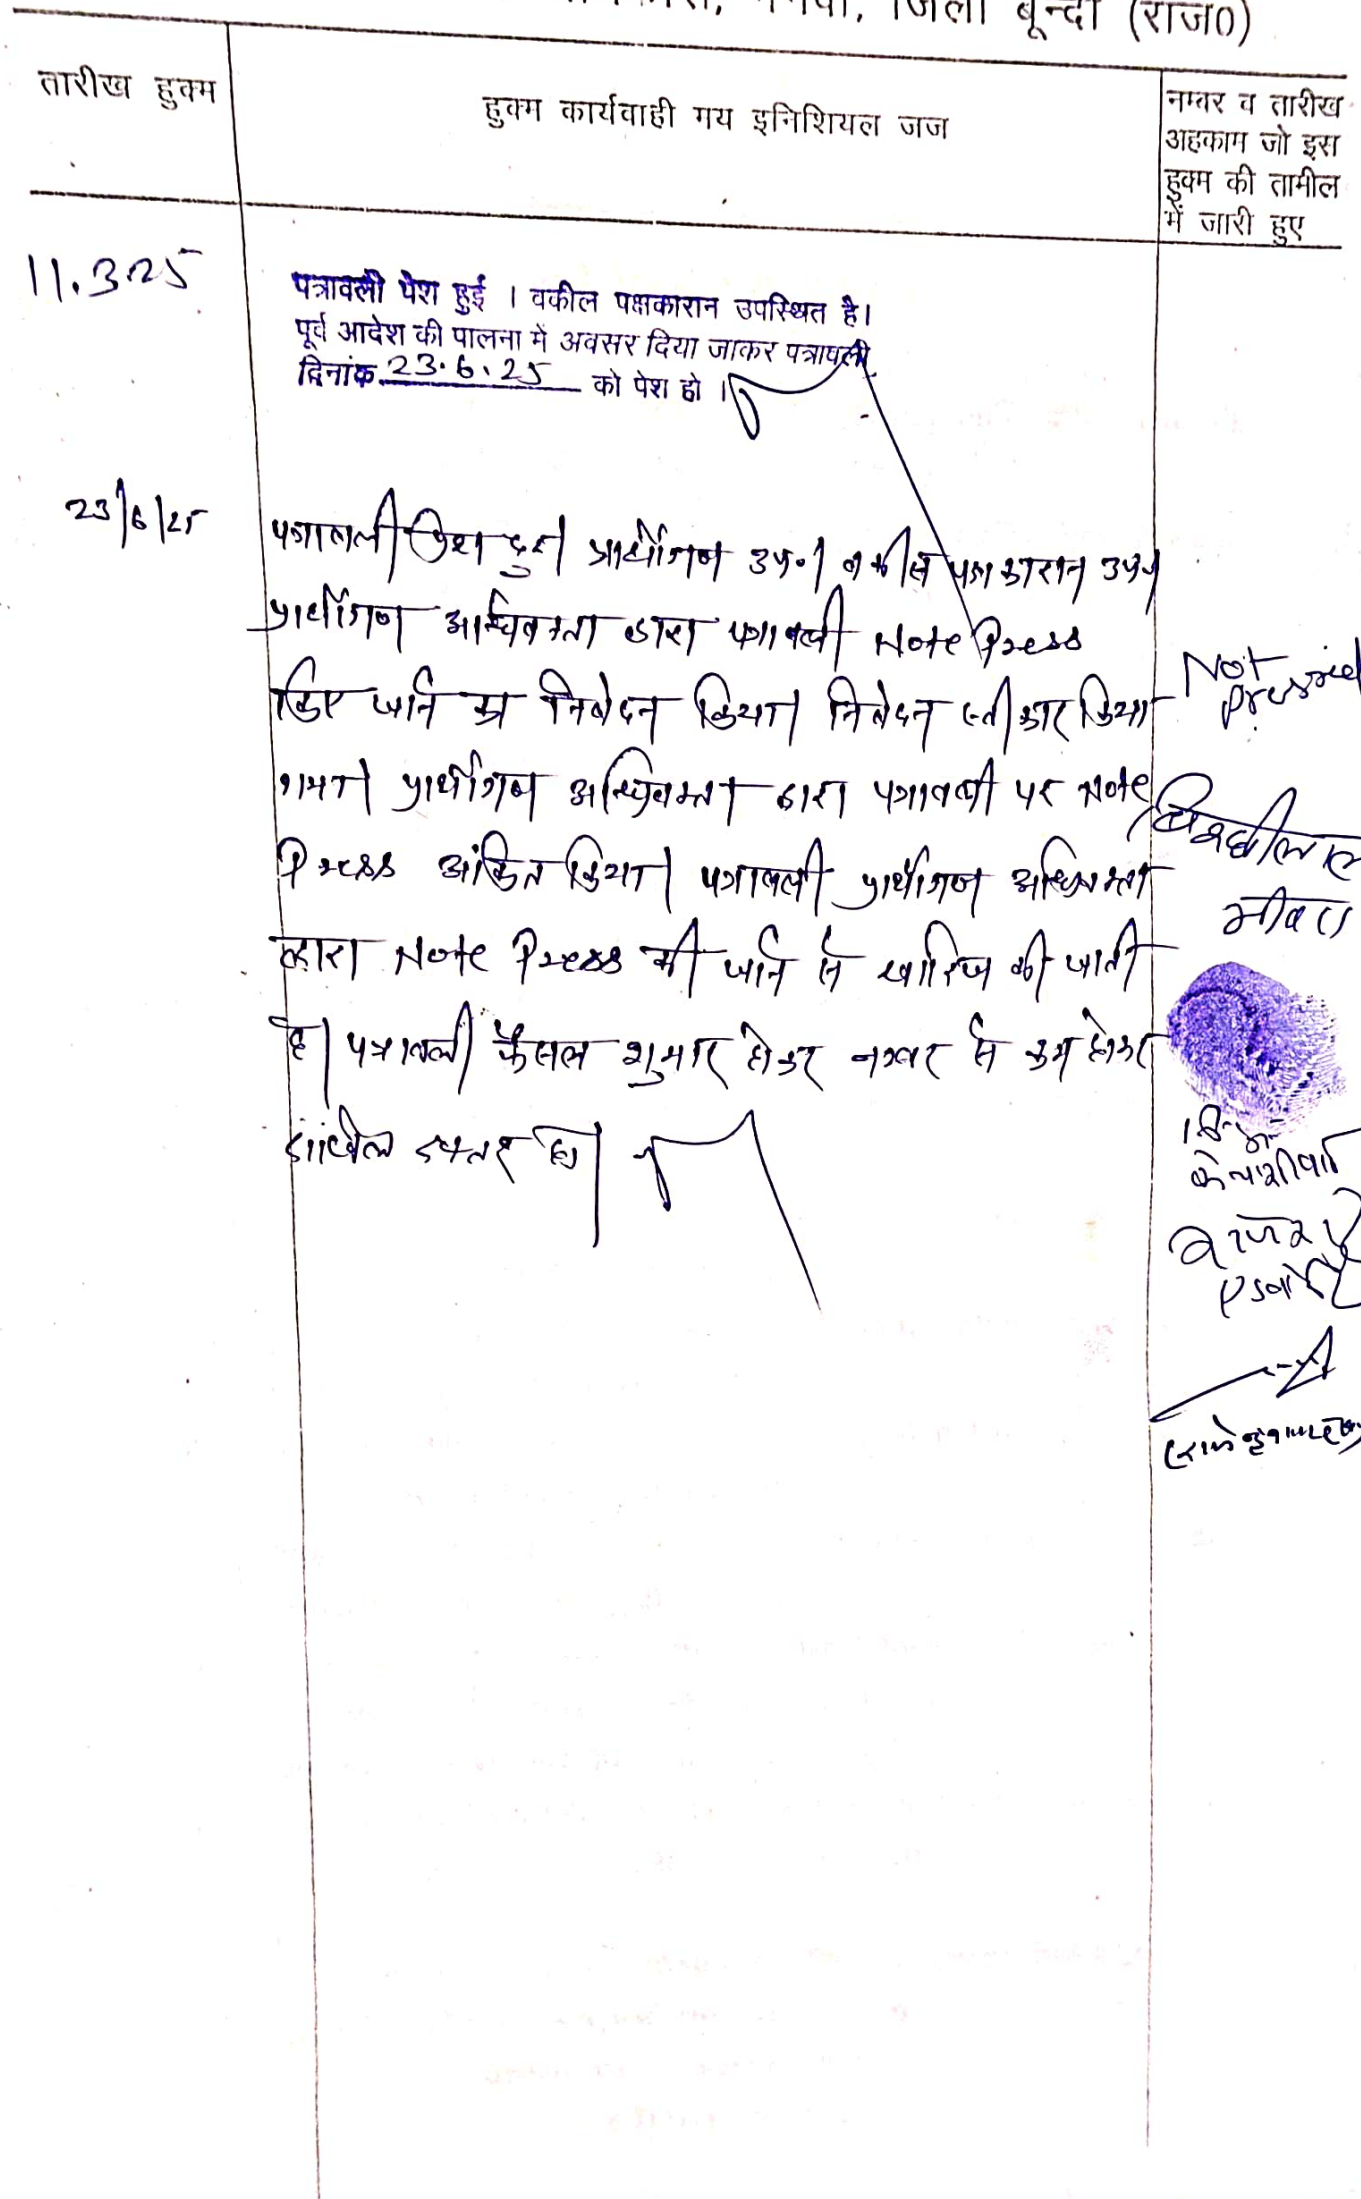 जिला बून्दी (राज0)
तारीख हुक्म
हुक्म कार्यवाही मय इनिशियल जज
नम्बर व तारीख
अहकाम जो इस
हुक्म की तामील
में जारी हुए
11.3.25
पत्रावली पेश हुई । वकील पक्षकारान उपस्थित है।
पूर्व आदेश की पालना में अवसर दिया जाकर पत्रावली
दिनांक 23.6.25 को पेश हो ।
23/6/25
पत्रावली पेश हुई। प्रार्थीगण उप०। वकील पक्षकारान उप०।
प्रार्थीगण अधिवक्ता द्वारा पत्रावली Note Press
किए जाने का निवेदन किया। निवेदन स्वीकार किया
गया। प्रार्थीगण अधिवक्ता द्वारा पत्रावली पर Note
Press अंकित किया। पत्रावली प्रार्थीगण अधिवक्ता
द्वारा Note Press की जाने से खारिज की जाती
है। पत्रावली फैसल शुमार होकर नम्बर से कम होकर
दाखिल दफ्तर हो।
Not
pressed
मीणा
नि-अ-